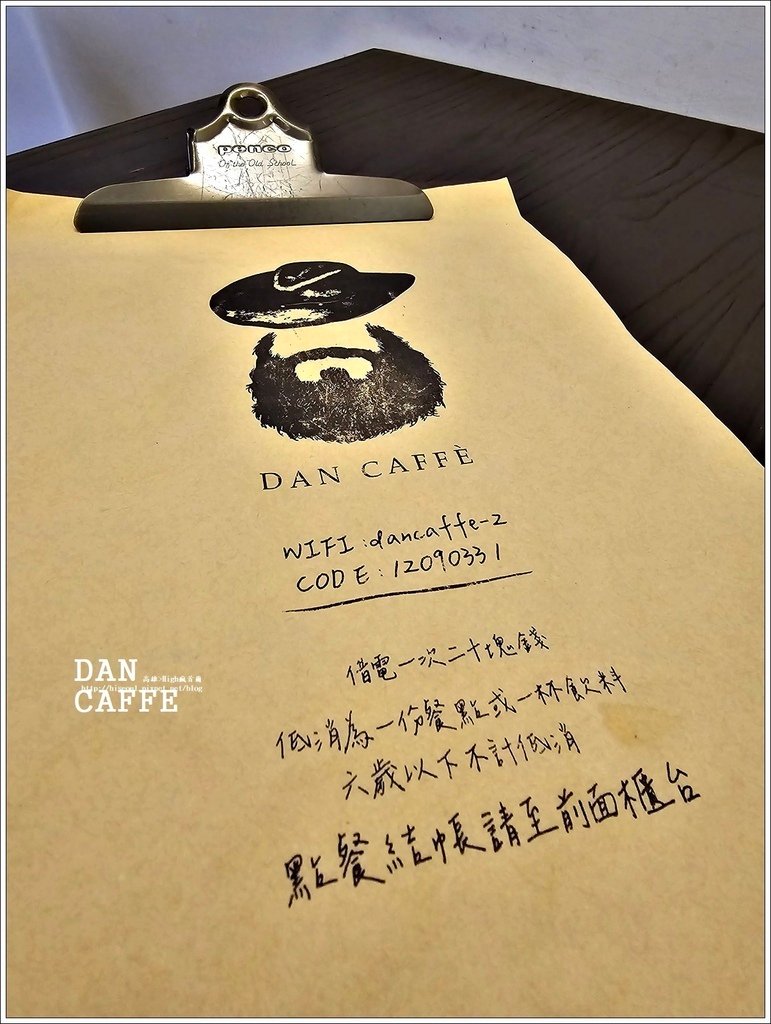 penco
On the Old School
DAN CAFFÈ
WIFI:dancaffe-2
CODE:12090331
借電一次二十塊錢
低消為一份餐點或一杯飲料
六歲以下不計低消
點餐結帳請至前面櫃台
DAN
高雄
CAFFE